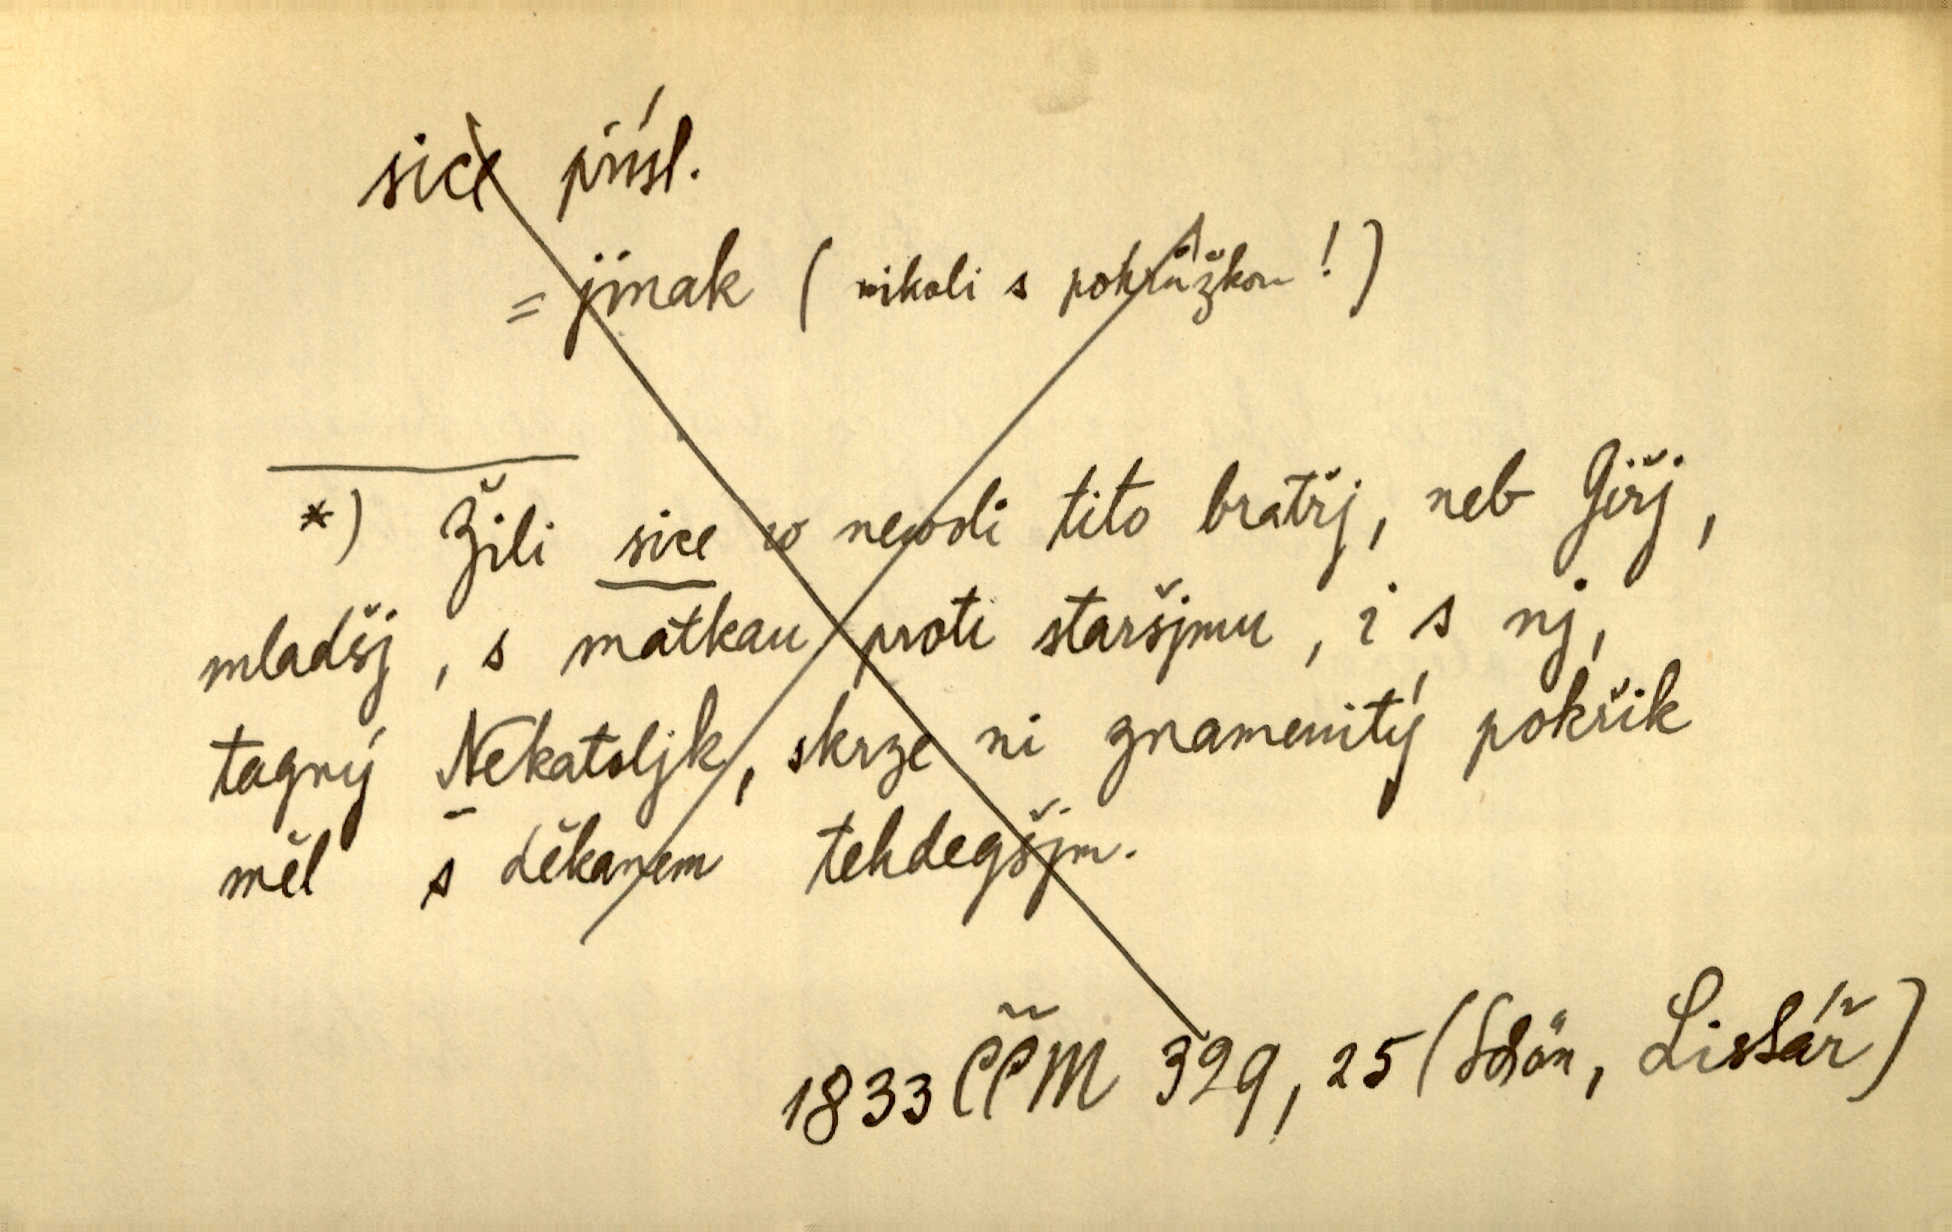 sice přísl.
= jinak (nikoli s pokrůžkou!)
*) Žili sice w newoli tito bratřj, neb Girj,
mladšj, s matkau proti staršjmu, i s nj,
tagný Nekatoljk, skrze ni znamenitý pokřik
měl s děkanem tehdegšjm.
1833 ČČM 329, 25 (Schön, Lisšář)